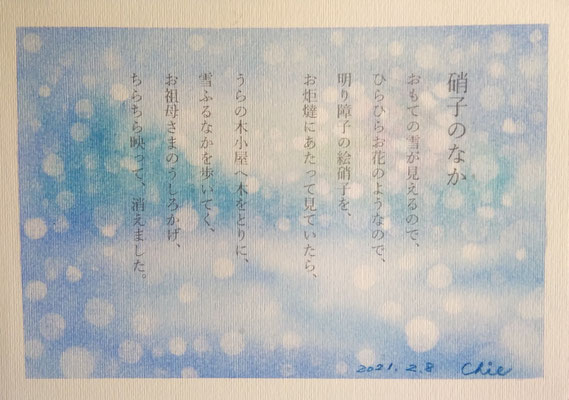 硝子のなか
おもての雪が見えるので、
ひらひらお花のようなので、
明り障子の絵硝子を、
お炬燵にあたって見ていたら、
うらの木小屋へ木をとりに、
雪ふるなかを歩いてく、
お祖母さまのうしろかげ、
ちらちら映って、消えました。
2021.2.8 Chie